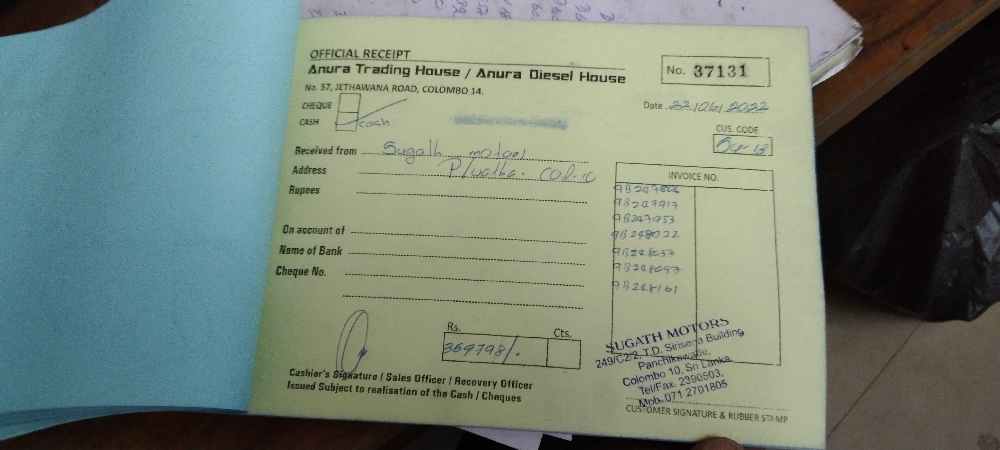 OFFICIAL RECEIPT
Anura Trading House / Anura Diesel House
No. 57, JETHAWANA ROAD, COLOMBO 14.
No. 37131
CHEQUE
CASH cash
Date 22/06/2022
CUS. CODE
Received from Sugath motors
Address
Rupees
On account of
Name of Bank
Cheque No.
INVOICE NO.
9B247917
9B247953
9B248022
9B248037
9B248097
9B248161
Rs. Cts.
369798/.
Cashier's Signature / Sales Officer / Recovery Officer
Issued Subject to realisation of the Cash / Cheques
SUGATH MOTORS
249/C2/2, T.D. Sirisena Building
Panchikawatte,
Colombo 10, Sri Lanka.
Tel/Fax. 2390503,
Mob. 071 2701805
CUSTOMER SIGNATURE & RUBBER STAMP